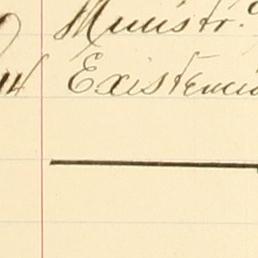 Ministr.
14 Existencia